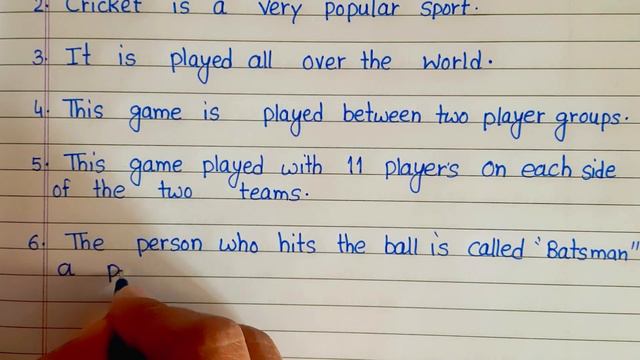 2. Cricket is a very popular sport.
3. It is played all over the world.
4. This game is played between two player groups.
5. This game played with 11 players on each side
of the two teams.
6. The person who hits the ball is called "Batsman"
a